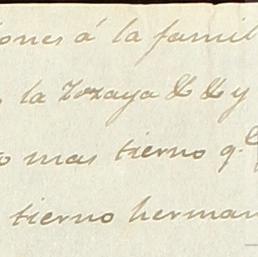 ones á la famil
la Zozaya & & y
o mas tierno q.e
tierno herman